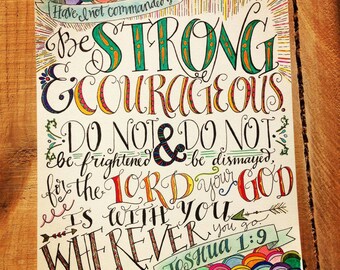 Have I not commanded
Be STRONG
& COURAGEOUS.
DO NOT & DO NOT
be frightened be dismayed,
for the LORD your GOD
IS WITH YOU
WHEREVER you go.
Joshua 1:9